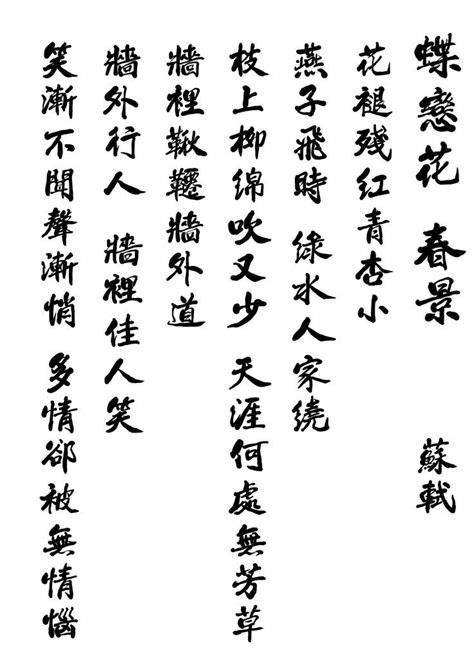 蝶戀花 春景 蘇軾
花褪殘紅青杏小
燕子飛時 綠水人家繞
枝上柳綿吹又少 天涯何處無芳草
牆裡鞦韆牆外道
牆外行人 牆裡佳人笑
笑漸不聞聲漸悄 多情卻被無情惱